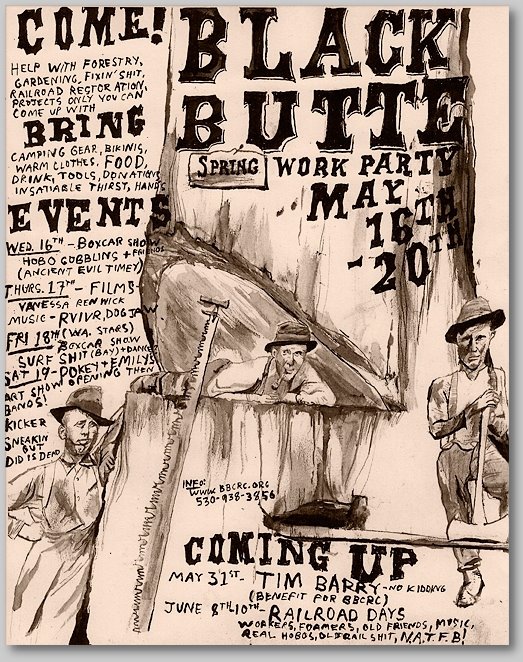 COME!
HELP WITH FORESTRY,
GARDENING, FIXIN' SHIT,
RAILROAD RESTORATION,
PROJECTS ONLY YOU CAN
COME UP WITH
BRING
CAMPING GEAR, BIKINIS,
WARM CLOTHES, FOOD,
DRINK, TOOLS, DONATIONS
INSATIABLE THIRST, HANDS
EVENTS
WED. 16TH - BOXCAR SHOW
HOBO GOBBLINS + FRIENDS
(ANCIENT EVIL TIMEY)
THURS. 17TH - FILMS -
VANESSA RENWICK
MUSIC - RVIVR, DOG JAW
FRI 18TH (WA. STARS)
BOXCAR SHOW
SURF SHIT (BAY) + DANCE!
SAT 19 - POKEY + EMILYS
ART SHOW OPENING THEN
BANDS!
KICKER
SNEAKIN
BUT
DID IS DEAD
BLACK
BUTTE
SPRING WORK PARTY
MAY
16TH
-20TH
INFO:
WWW.BBCRC.ORG
530-938-3856
COMING UP
MAY 31ST- TIM BARRY -NO KIDDING
(BENEFIT FOR BBCRC)
JUNE 8TH 10TH- RAILROAD DAYS
WORKERS, FOAMERS, OLD FRIENDS, MUSIC,
REAL HOBOS, OLD RAIL SHIT, N.A.T.F.B!